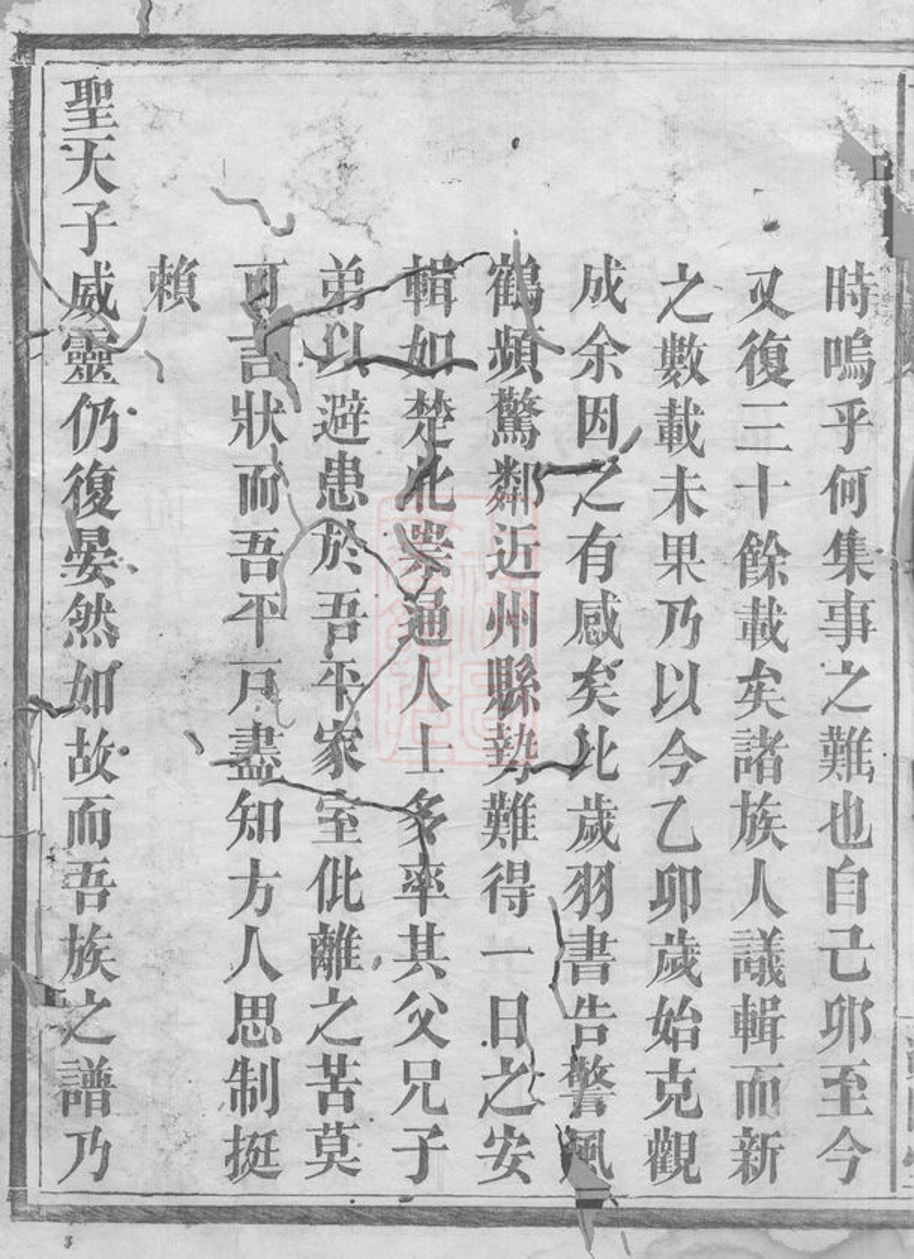 時嗚乎何集事之難也自己卯至今
又復三十餘載矣諸族人議輯而新
之數載未果乃以今乙卯歲始克觀
成余因之有感矣比歲羽書告警風
鶴頻驚鄰近州縣勢難得一日之安
輯如楚北崇通人士多率其父兄子
弟以避患於吾平家室仳離之苦莫
可言狀而吾平戸盡知方人思制挺
賴
聖天子威靈仍復晏然如故而吾族之譜乃